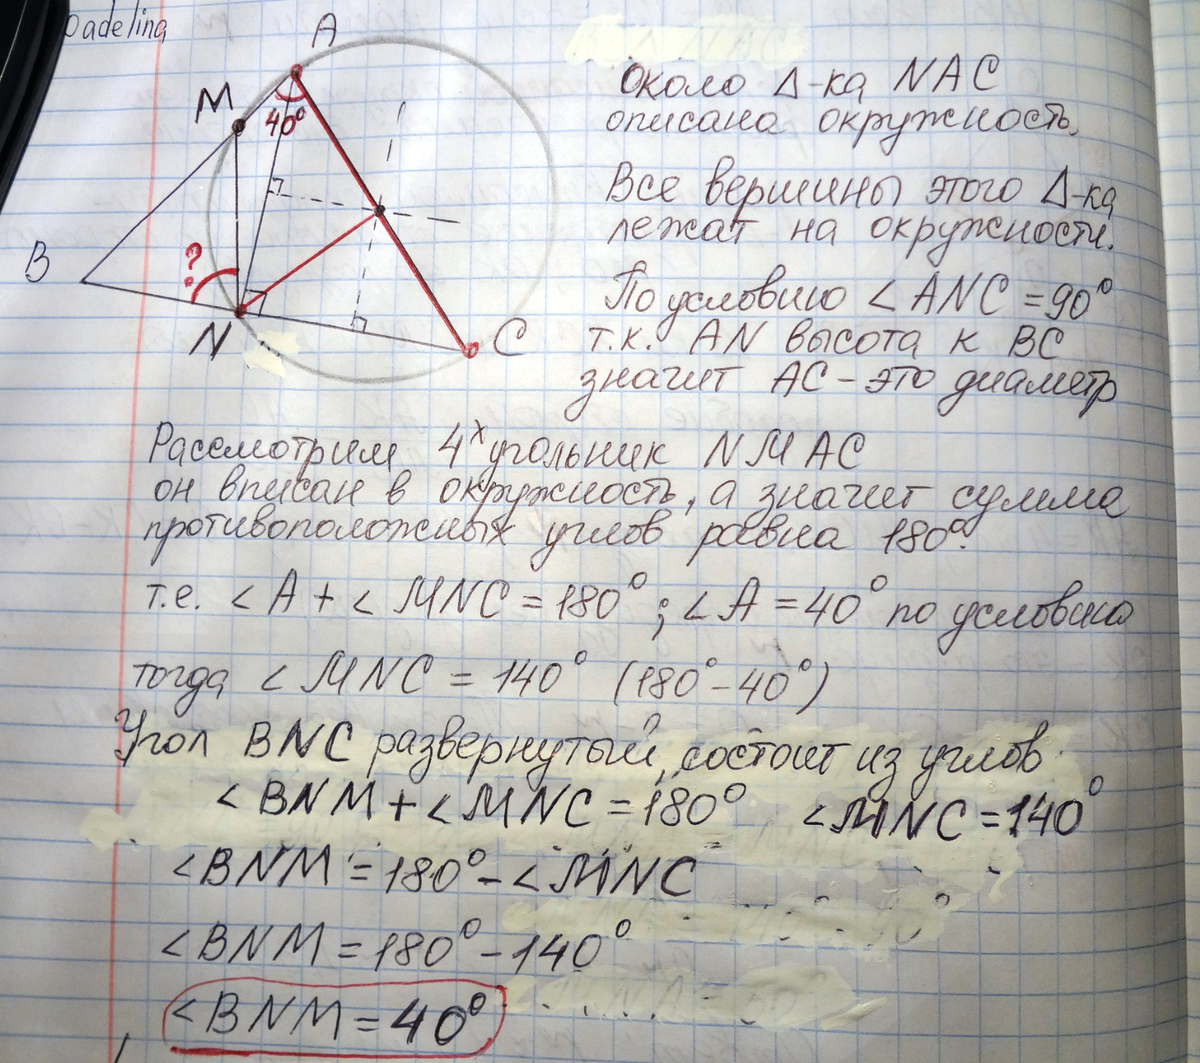 Dadelina
A
M
40°
B
?
N
C
Около Δ-ка NAC
описана окружность.
Все вершины этого Δ-ка
лежат на окружности.
По условию ∠ANC = 90°
т.к. AN высота к BC
значит AC - это диаметр
Рассмотрим 4х угольник NMAC
он вписан в окружность, а значит сумма
противоположных углов равна 180°.
т.е. ∠A + ∠MNC = 180°; ∠A = 40° по условию
тогда ∠MNC = 140° (180° - 40°)
Угол BNC развернутый, состоит из углов
∠BNM + ∠MNC = 180° ∠MNC = 140°
∠BNM = 180° - ∠MNC
∠BNM = 180° - 140°
∠BNM = 40°